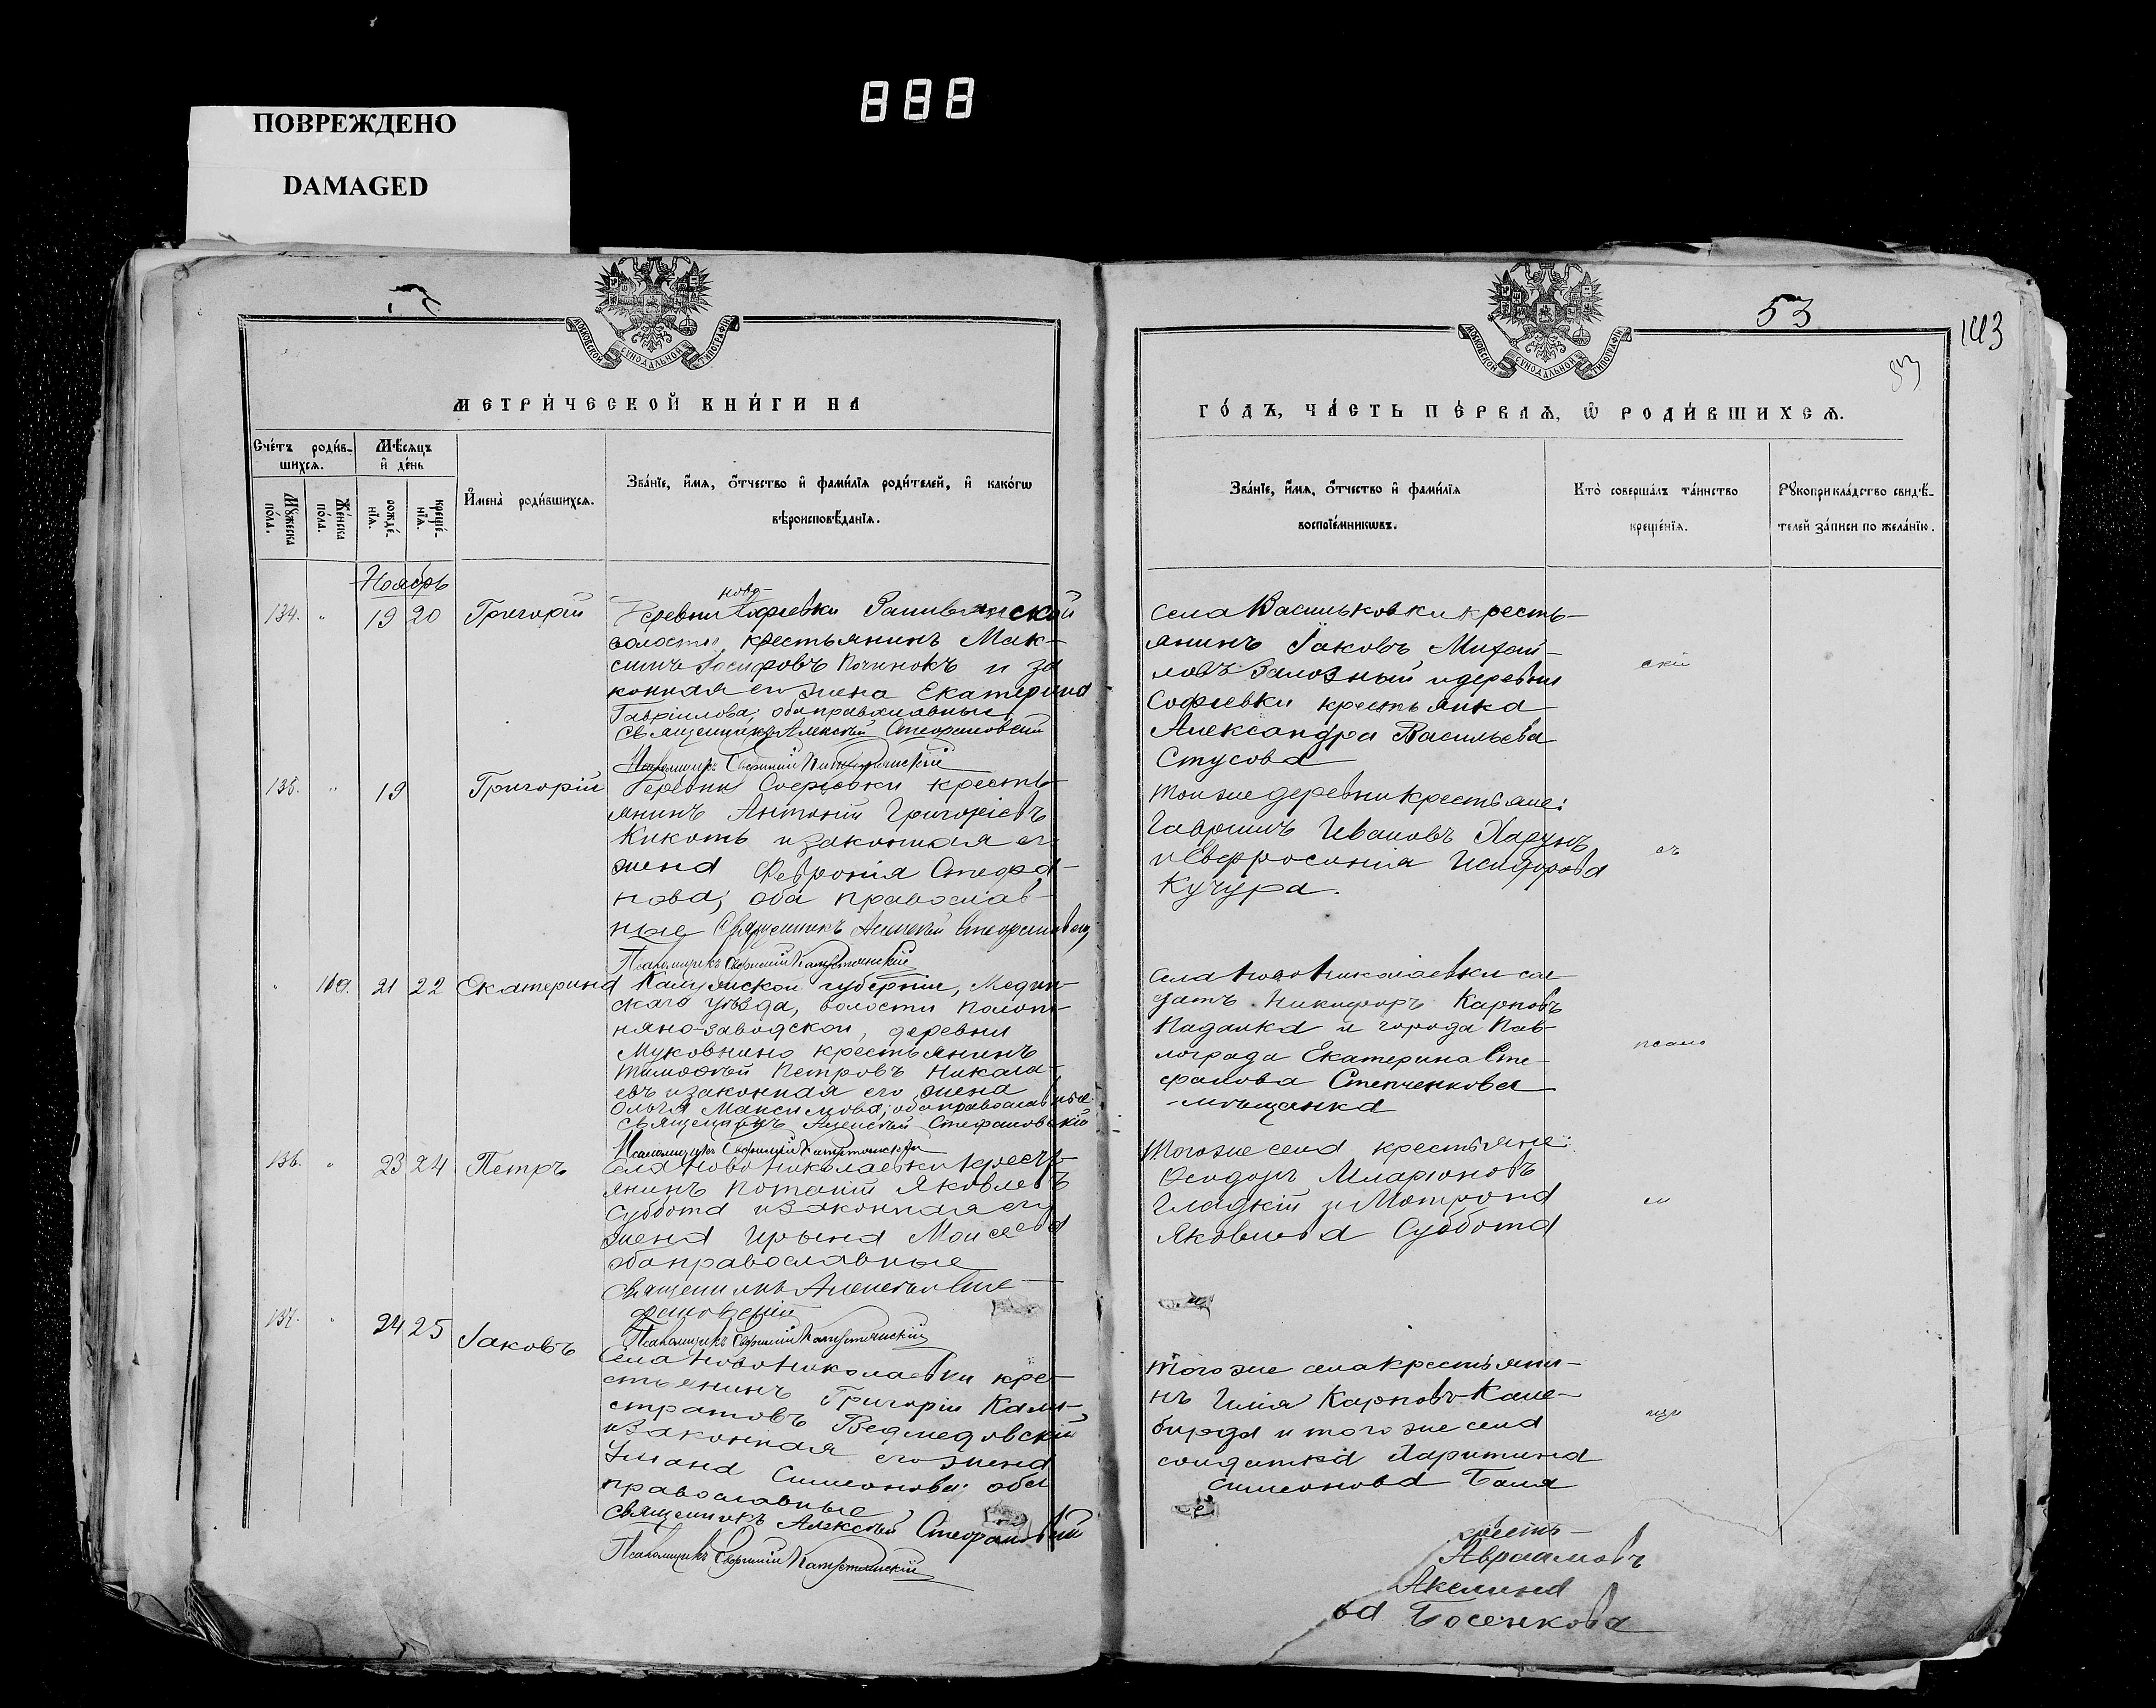 ПОВРЕЖДЕНО
DAMAGED
888
МОСКОВСКОЙ СѴНОДАЛЬНОЙ ТИПОГРАФІИ
МЕТРИ́ЧЕСКОЙ КНИ́ГИ НА
Сче́тъ роди́в-
шихсѧ.
Мѣ́сѧцъ
и҆ де́нь
Мꙋ́жеска
по́ла.
Же́нска
по́ла.
рожде́-
нїѧ.
креще́-
нїѧ.
И҆мена̀ роди́вшихсѧ.
Зва́нїе, и҆́мѧ, о҆́тчество и҆ фами́лїѧ роди́телей, и҆ како́гѡ
вѣроисповѣ́данїѧ.
Ноябрь
134. " 19 20 Григорій
ново-
Деревни Софіевки
волости, крестьянинъ Мак-
симъ Іосифовъ Починокъ и за
конная его жена Екатерина
Гавріилова; оба православные
Священникъ Алексѣй Стефановскій
Псаломщикъ
135. " 19 Григорій
Деревни Софіевки кресть-
янинъ Антоній Григоріевъ
Кикоть и законная его
жена Февронія Стефа-
нова; оба православ-
ные Священникъ Алексѣй Стефановскій
Псаломщикъ
" 119. 21 22 Екатерина
Калужской губерніи, Медын-
скаго уѣзда, волости Полот-
няно-заводской, деревни
Муковнино крестьянинъ
Тимофей Петровъ Никола-
евъ и законная его жена
Ольга Максимова; оба православные.
Священникъ Алексѣй Стефановскій
Псаломщикъ
136. " 23 24 Петръ
Села Новониколаевки крест-
янинъ Потапій Яковлевъ
Суббота и законная его
жена Ирына Моисеева
оба православные
Священникъ Алексѣй Сте-
фановскій
Псаломщикъ
137. " 24 25 Іаковъ
Села Новониколаевки кре-
стьянинъ Григорій Кали-
стратовъ Ведмедовскій
и законная его жена
Симеонова; оба
православные
Священникъ Алексѣй Стефановскій
Псаломщикъ
53
143
53
МОСКОВСКОЙ СѴНОДАЛЬНОЙ ТИПОГРАФІИ
ГО́ДЪ, ЧА́СТЬ ПЕ́РВАѦ, Ѡ҆ РОДИ́ВШИХСѦ.
Зва́нїе, и҆́мѧ, о҆́тчество и҆ фами́лїѧ
воспрїе́мникѡвъ.
Кто̀ соверша́лъ та́инство
креще́нїѧ.
Рꙋкоприкла́дство свидѣ́-
телей за́писи по жела́нїю.
села Васильковки кресть-
янинъ Іаковъ Михай-
ловъ Залозный и деревни
Софіевки крестьянка
Александра Васильева
Стусова
скій
Тои же деревни крестьяне:
Гавріилъ Ивановъ Харунъ
и Евфросинія Исидорова
Кучура.
ъ
села Новониколаевки сол-
датъ Никифоръ Карповъ
Падалка и города Пав-
лограда Екатерина Сте-
фанова Степченкова
-мѣщанка
Того же села крестьяне:
Феодоръ Иларіоновъ
Гладкій и Матрона
Яковлева Суббота
Того же села крестьяни-
нъ Илія Карповъ Кале-
берда и того же села
солдатка Харитина
Симеонова Баля
кресть-
Авраамовъ
Акилина
ва Босенкова